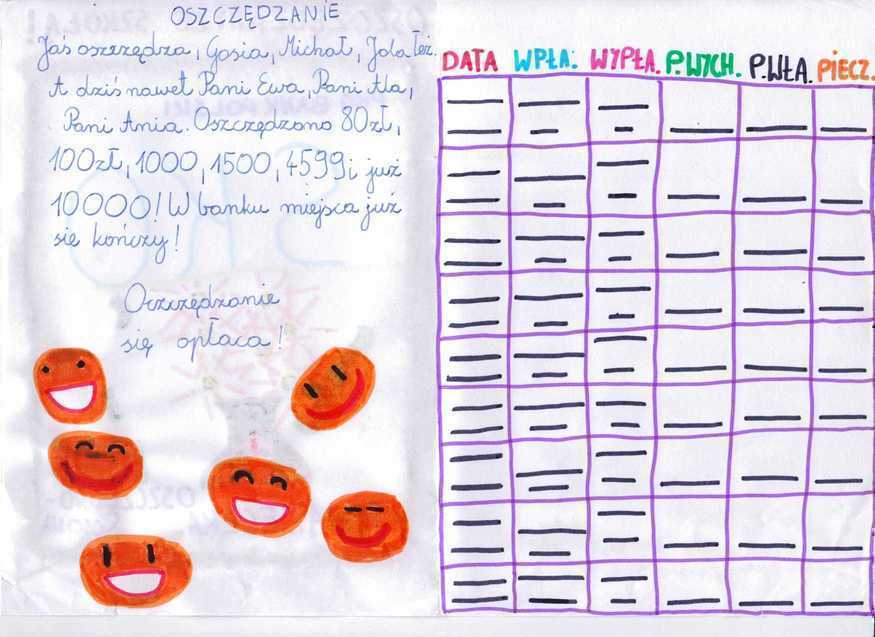 OSZCZĘDZANIE
Jaś oszczędza, Gosia, Michał, Jola też.
A dziś nawet Pani Ewa, Pani Ala,
Pani Ania. Oszczędzono 80zł,
100zł, 1000, 1500, 4599 i już
10000! W banku miejsca już
się kończy!
Oszczędzanie
się opłaca!
DATA WPŁA: WYPŁA. P.WYCH. P.WŁA. PIECZ.